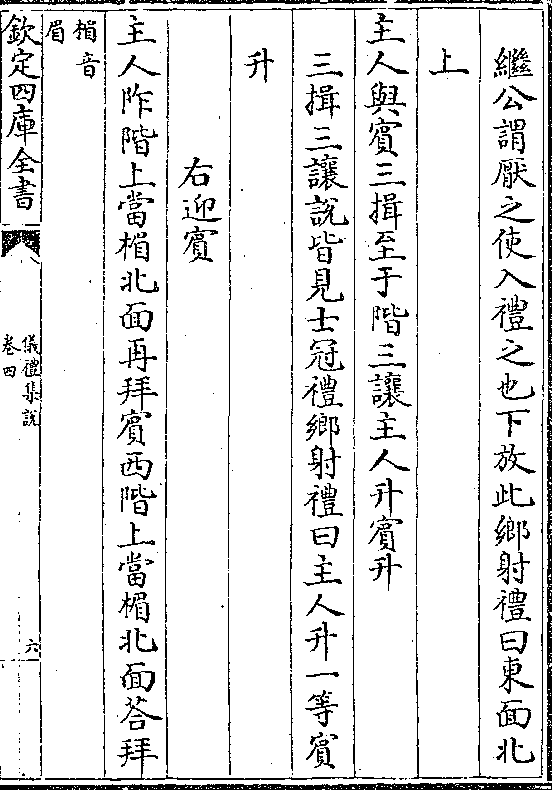 繼公謂厭之使入禮之也下放此鄉射禮曰東面北
上
主人與賓三揖至于階三讓主人升賓升
三揖三讓說皆見士冠禮鄉射禮曰主人升一等賓
升
右迎賓
主人阼階上當楣北面再拜賓西階上當楣北面答拜
楣音
眉
欽定四庫全書
儀禮集說
卷四
六